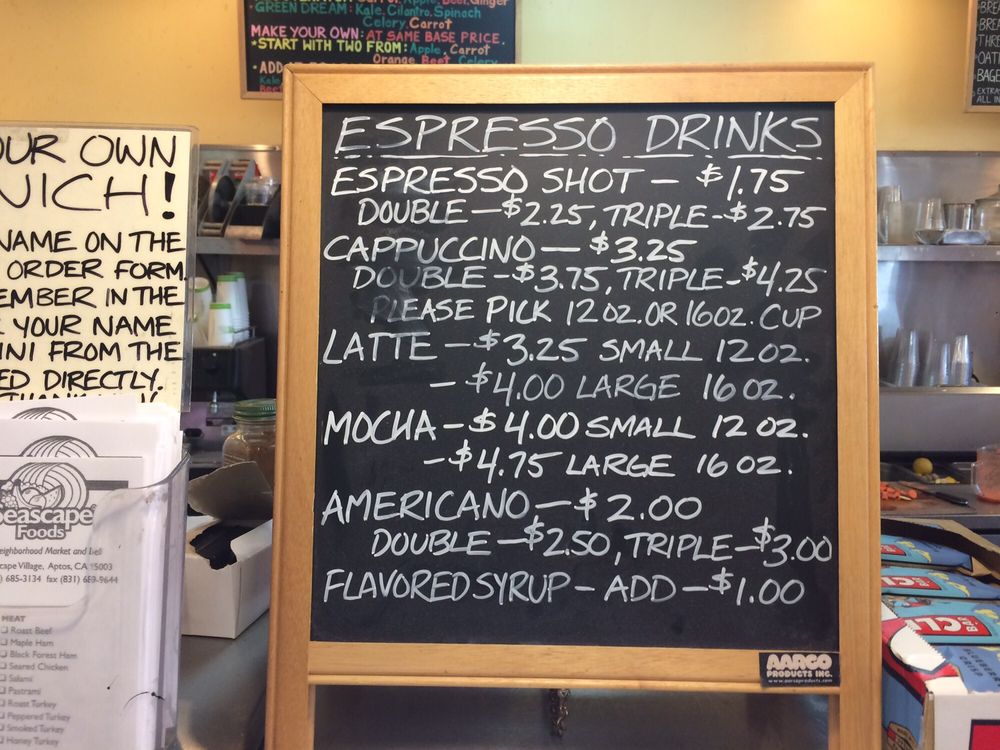 GREEN DREAM: Kale, Cilantro, Spinach
Celery, Carrot
MAKE YOUR OWN: AT SAME BASE PRICE.
*START WITH TWO FROM: Apple, Carrot
Orange, Beet, Celery
OUR OWN
WICH!
NAME ON THE
ORDER FORM.
EMBER IN THE
YOUR NAME
INI FROM THE
ED DIRECTLY.
ESPRESSO DRINKS
ESPRESSO SHOT - $1.75
DOUBLE - $2.25, TRIPLE - $2.75
CAPPUCCINO - $3.25
DOUBLE - $3.75, TRIPLE - $4.25
PLEASE PICK 12 OZ. OR 16 OZ. CUP
LATTE - $3.25 SMALL 12 OZ.
- $4.00 LARGE 16 OZ.
MOCHA - $4.00 SMALL 12 OZ.
- $4.75 LARGE 16 OZ.
AMERICANO - $2.00
DOUBLE - $2.50, TRIPLE - $3.00
FLAVORED SYRUP - ADD - $1.00
AARCO
PRODUCTS INC.
www.aarcoproducts.com
Seascape
Foods
eighborhood Market and Deli
cape Village, Aptos, CA 95003
) 685-3134 fax (831) 689-9644
MEAT
Roast Beef
Maple Ham
Black Forest Ham
Seared Chicken
Salami
Pastrami
Roast Turkey
Peppered Turkey
Smoked Turkey
Honey Turkey
CLIF
BAR